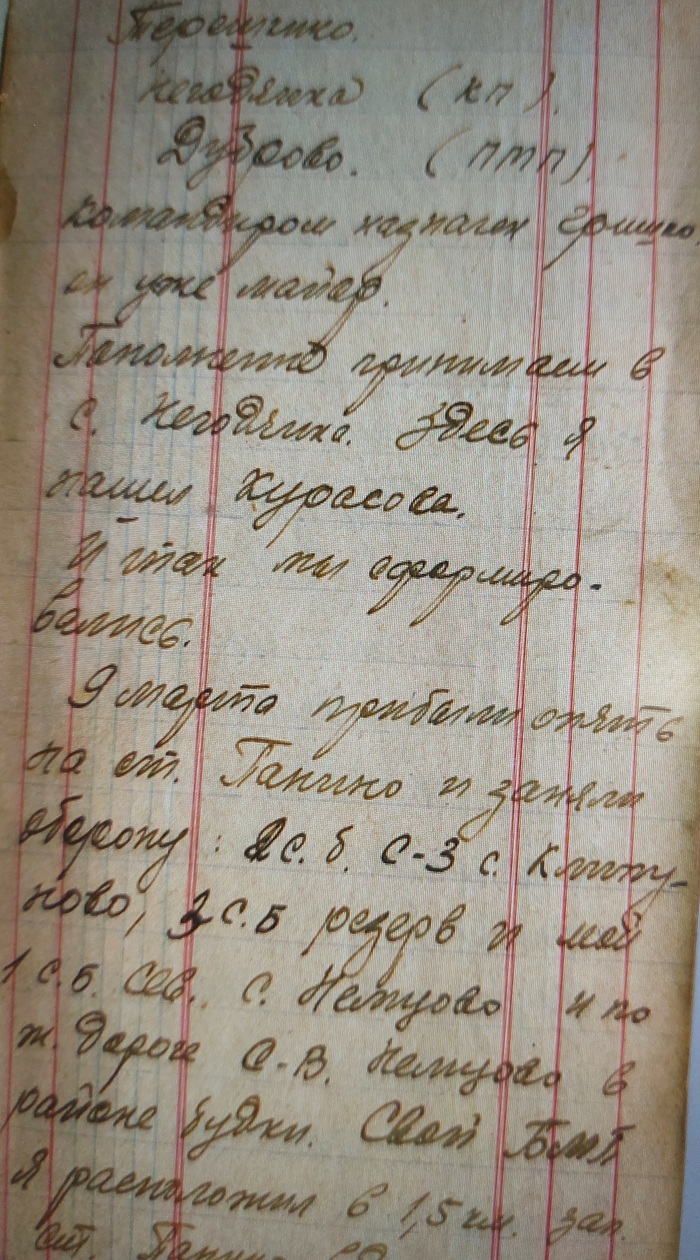 Терещенко.
Негодяиха (КП).
Дуброво. (ПМП)
командиром назначен Гришко
он уже майор.
Пополнение принимаем в
с. Негодяиха. Здесь я
нашел Курасова.
И так мы сформиро-
вались.
9 марта прибыли опять
на ст. Ганино и заняли
оборону: 2 с.б. С-З с. Клину-
ново, 3 с.б резерв и мой
1 с.б. сев. с. Немцово и по
ж. дороге С-В. Немцово в
районе будки. Свой БМП
я расположил в 1,5 км. зап.
ст.